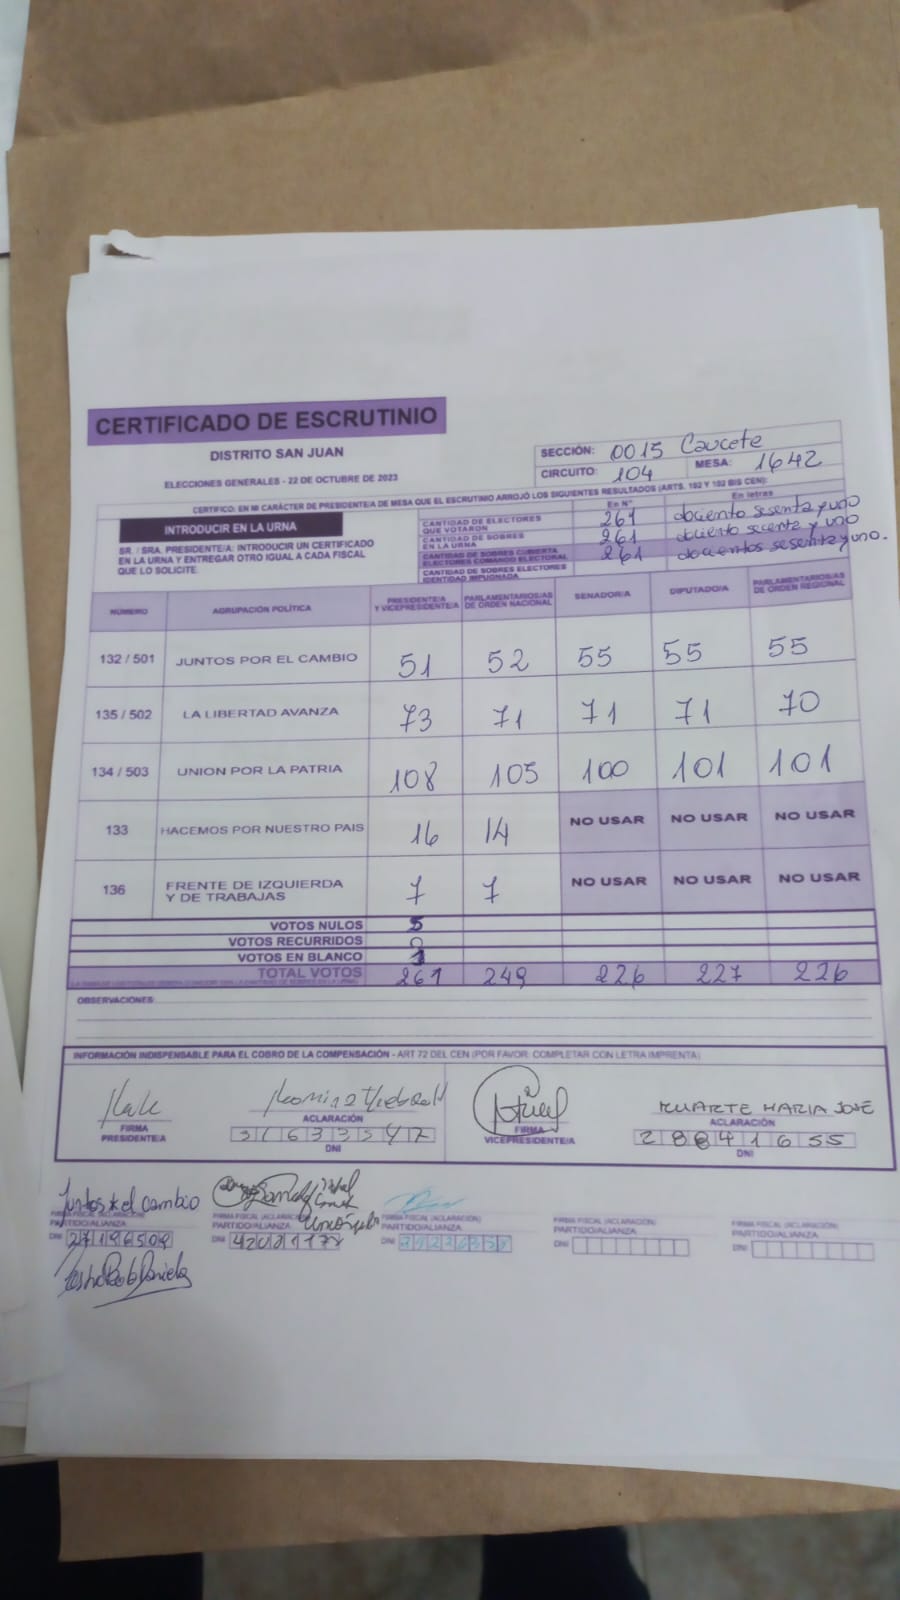 CERTIFICADO DE ESCRUTINIO
DISTRITO SAN JUAN
ELECCIONES GENERALES - 22 DE OCTUBRE DE 2023
SECCIÓN: 0015 Caucete
CIRCUITO: 104 MESA: 1642
CERTIFICO: EN MI CARÁCTER DE PRESIDENTE/A DE MESA QUE EL ESCRUTINIO ARROJÓ LOS SIGUIENTES RESULTADOS (ARTS. 102 Y 102 BIS CEN):
INTRODUCIR EN LA URNA
SR. / SRA. PRESIDENTE/A: INTRODUCIR UN CERTIFICADO
EN LA URNA Y ENTREGAR OTRO IGUAL A CADA FISCAL
QUE LO SOLICITE.
En N° En letras
CANTIDAD DE ELECTORES QUE VOTARON 261 dociento sesenta y uno
CANTIDAD DE SOBRES EN LA URNA 261 dociento secenta y uno
CANTIDAD DE SOBRES CUBIERTA ELECTORES COMANDO ELECTORAL 261 docientos sesenta y uno.
CANTIDAD DE SOBRES ELECTORES IDENTIDAD IMPUGNADA
NÚMERO AGRUPACIÓN POLÍTICA PRESIDENTE/A Y VICEPRESIDENTE/A PARLAMENTARIOS/AS DE ORDEN NACIONAL SENADOR/A DIPUTADO/A PARLAMENTARIOS/AS DE ORDEN REGIONAL
132 / 501 JUNTOS POR EL CAMBIO 51 52 55 55 55
135 / 502 LA LIBERTAD AVANZA 73 71 71 71 70
134 / 503 UNION POR LA PATRIA 108 105 100 101 101
133 HACEMOS POR NUESTRO PAIS 16 14 NO USAR NO USAR NO USAR
136 FRENTE DE IZQUIERDA Y DE TRABAJAS 7 7 NO USAR NO USAR NO USAR
VOTOS NULOS 5
VOTOS RECURRIDOS
VOTOS EN BLANCO 1
TOTAL VOTOS 261 249 226 227 226
OBSERVACIONES
INFORMACIÓN INDISPENSABLE PARA EL COBRO DE LA COMPENSACIÓN - ART 72 DEL CEN (POR FAVOR: COMPLETAR CON LETRA IMPRENTA)
FIRMA PRESIDENTE/A
ACLARACIÓN
DNI
FIRMA VICEPRESIDENTE/A
MARIA JOSE
ACLARACIÓN
28841655
DNI
Juntos x el cambio
FIRMA FISCAL (ACLARACIÓN) PARTIDO/ALIANZA
DNI 27196509
FIRMA FISCAL (ACLARACIÓN) PARTIDO/ALIANZA
DNI
FIRMA FISCAL (ACLARACIÓN) PARTIDO/ALIANZA
DNI
FIRMA FISCAL (ACLARACIÓN) PARTIDO/ALIANZA
DNI
FIRMA FISCAL (ACLARACIÓN) PARTIDO/ALIANZA
DNI